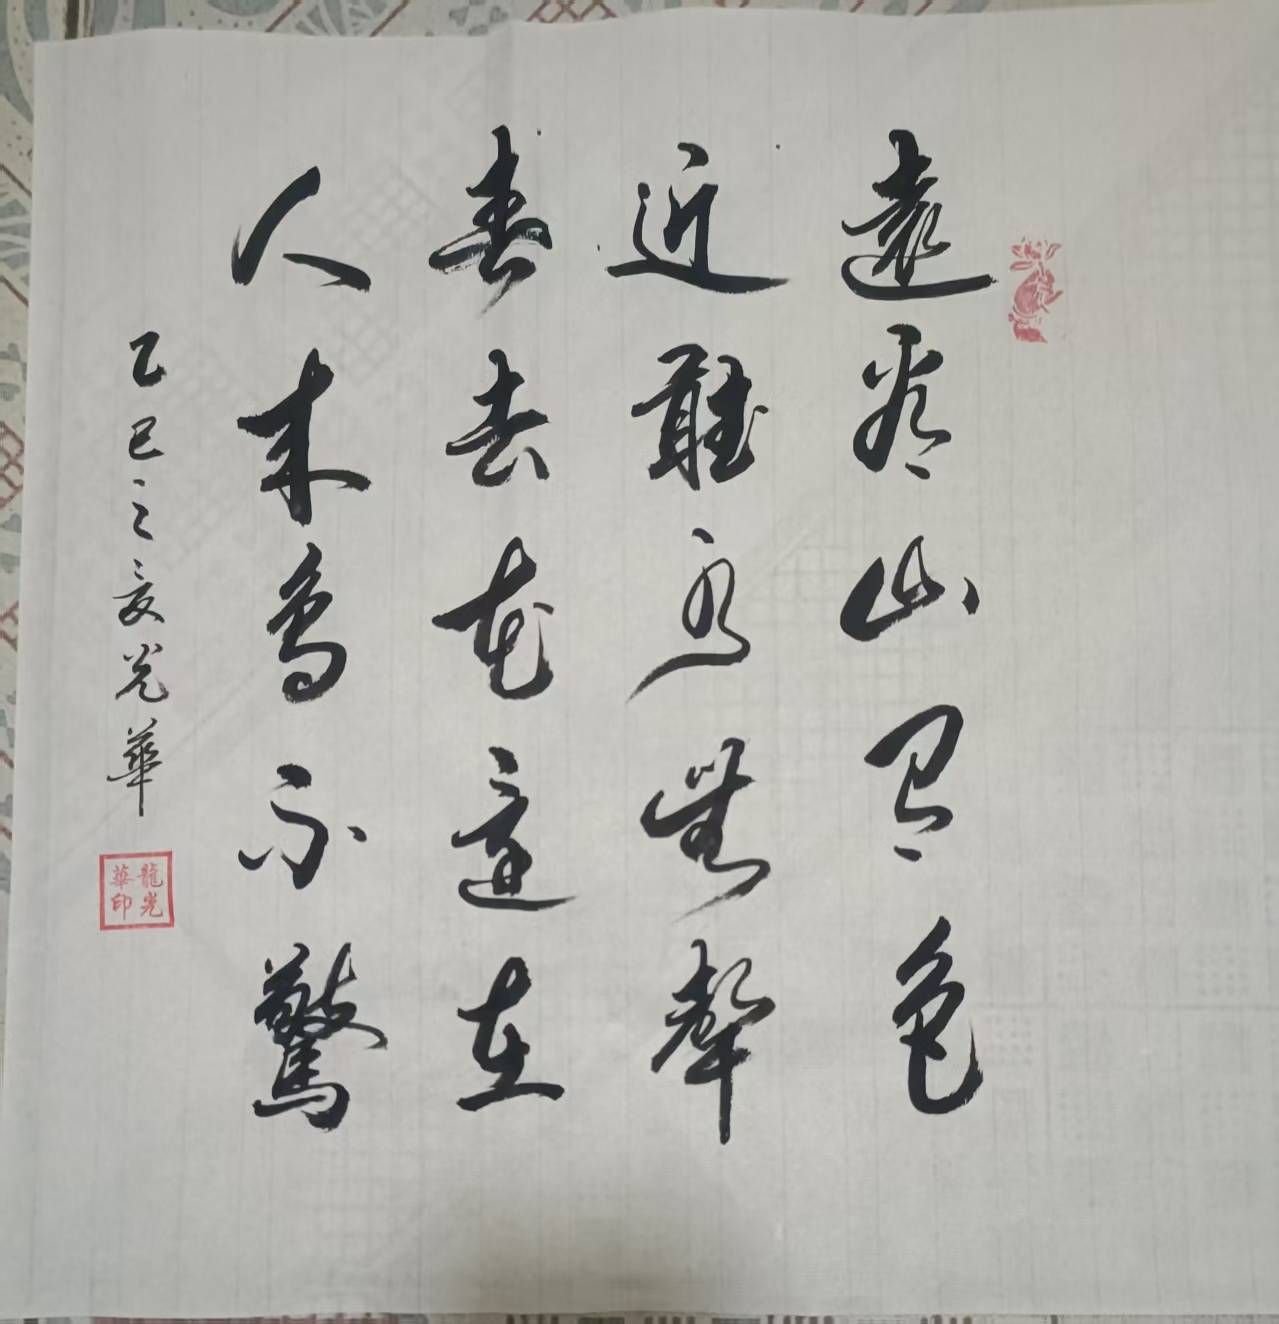 遠看山有色
近聽水無聲
春去花還在
人來鳥不驚
乙巳之夏光華
龍光華印